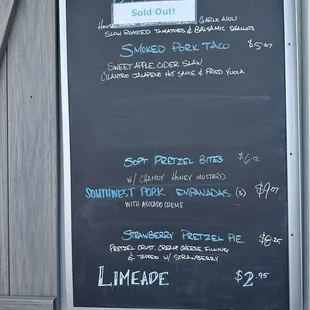 Sold Out!
Garlic Aioli
Slow Roasted Tomatoes & Balsamic Shallots
Smoked Pork Taco $5.07
Sweet Apple Cider Slaw
Cilantro Jalapeno Hot Sauce & Fried Yuca
Soft Pretzel Bites $6.12
w/ Chamoy Honey Mustard
Southwest Pork Empanadas (3) $9.07
with Avocado Creme
Strawberry Pretzel Pie $8.25
Pretzel Crust, Cream Cheese Filling
& Topped w/ Strawberry
Limeade $2.95